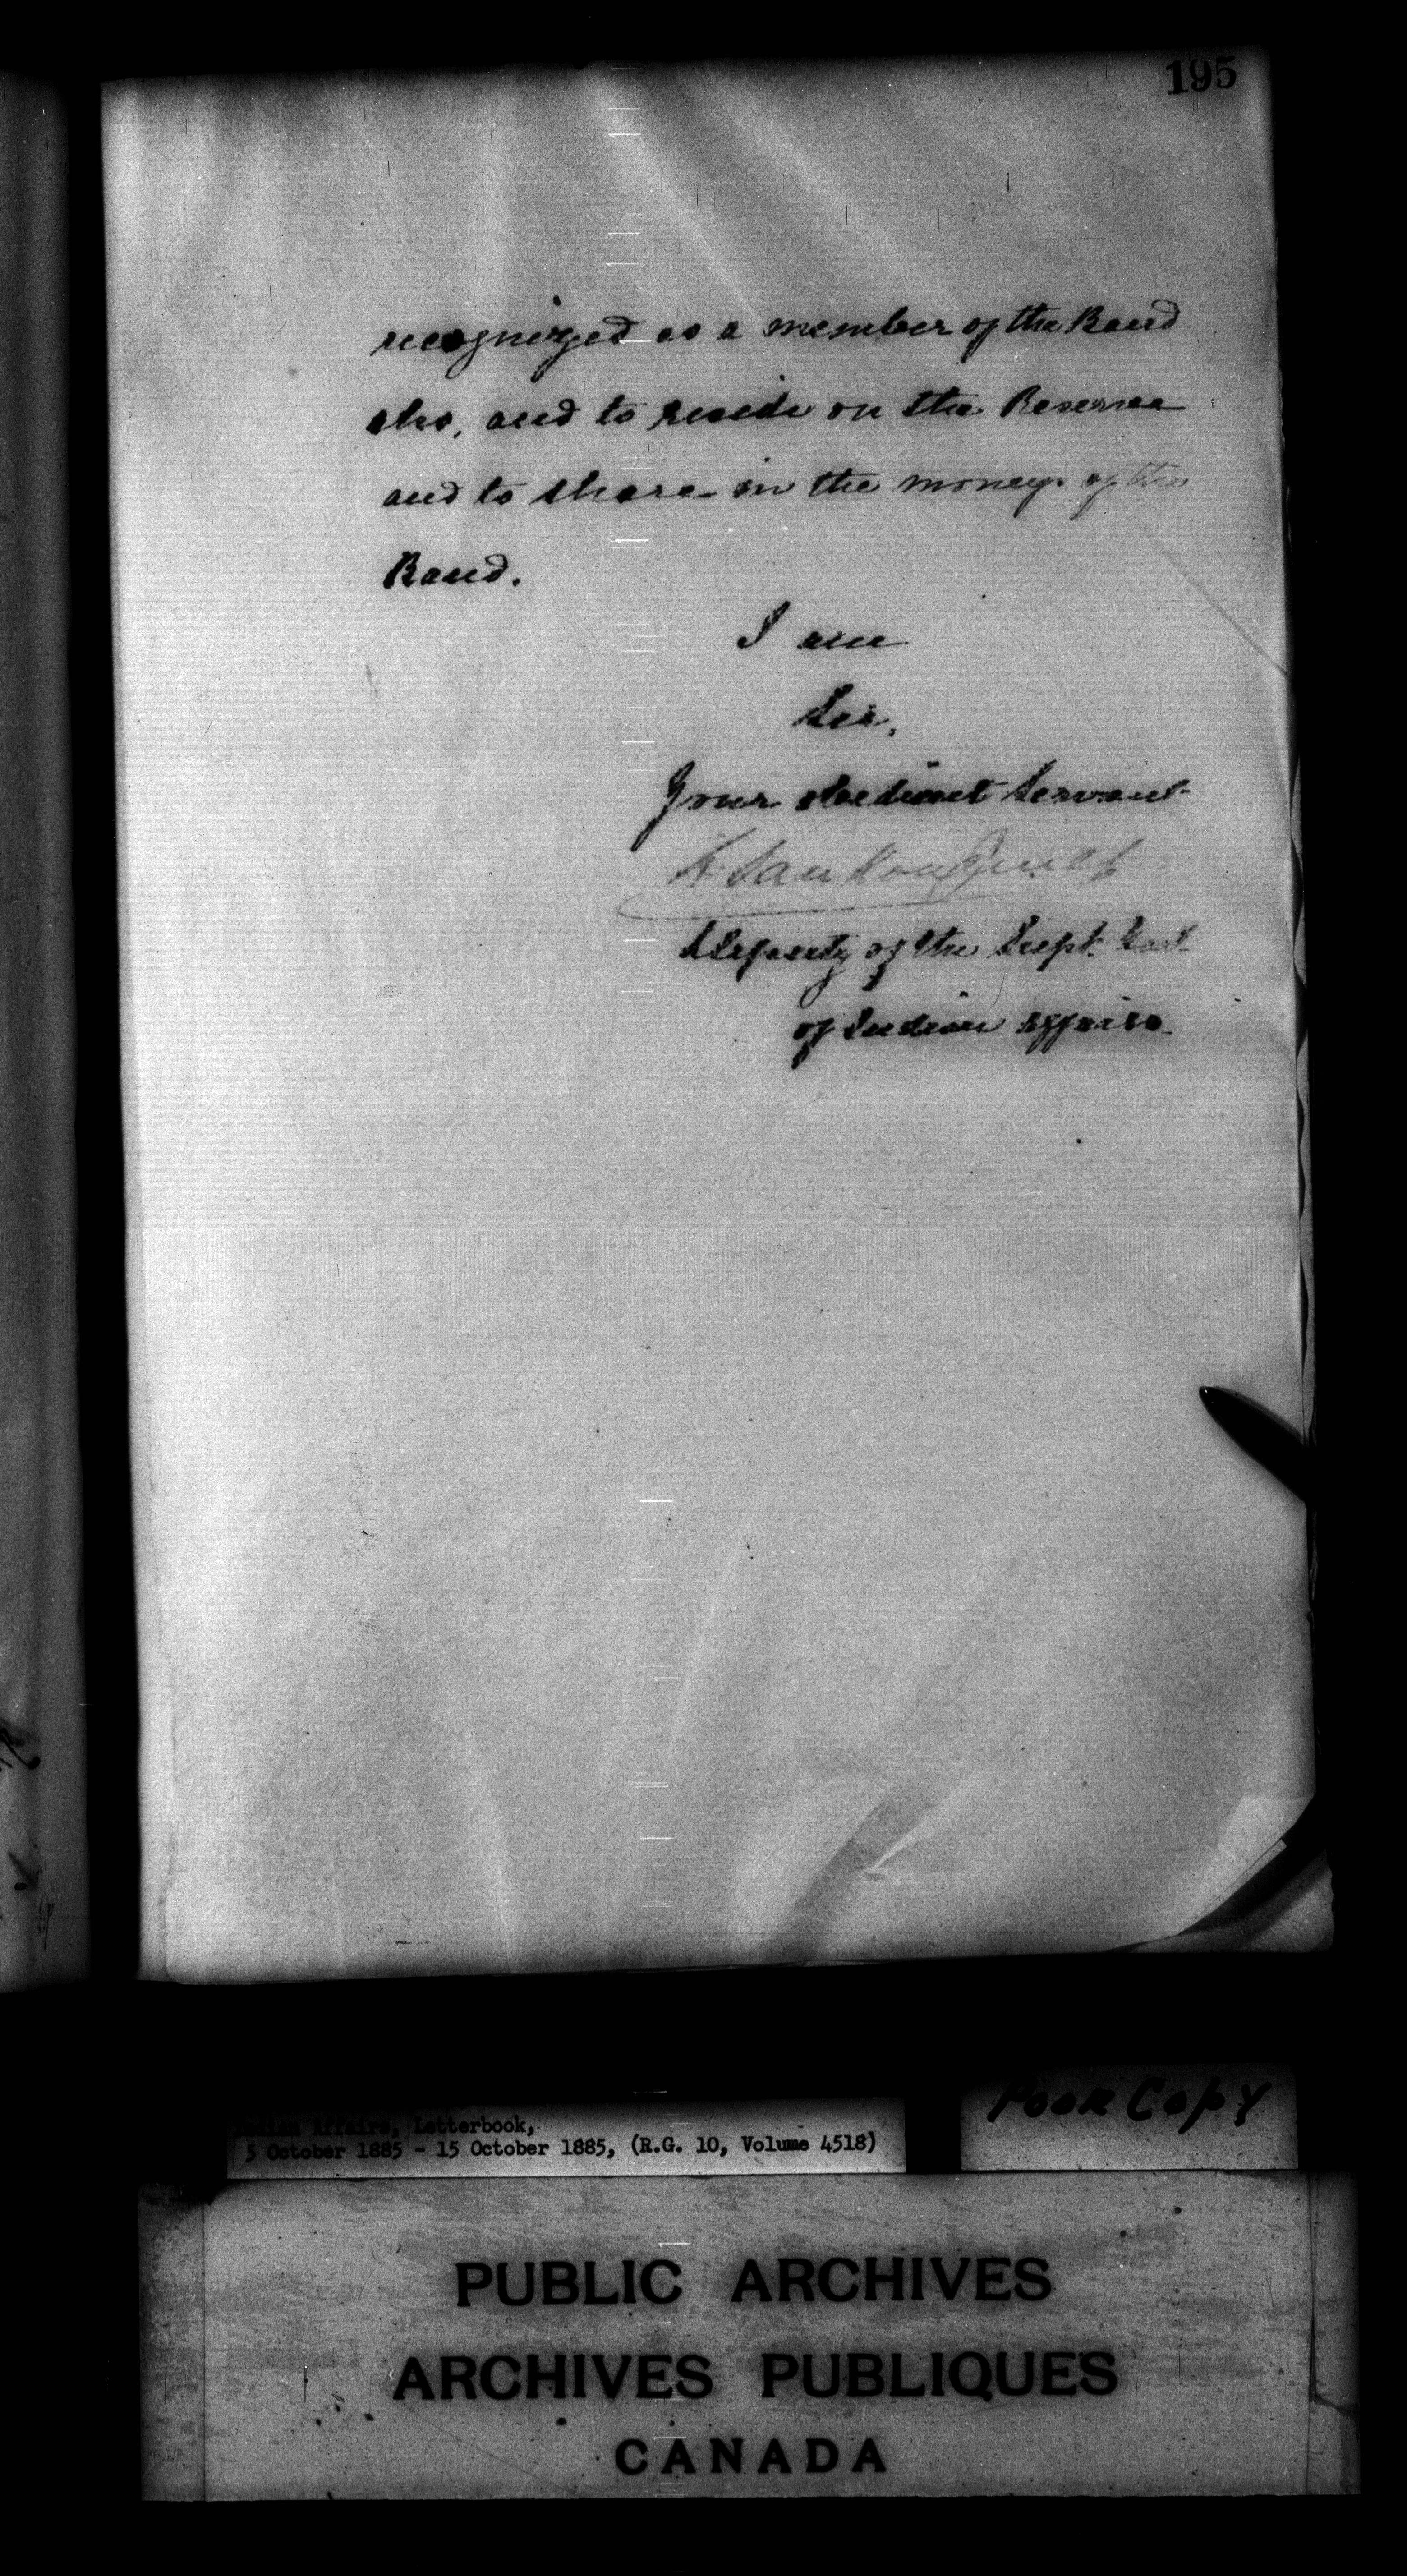 195
recognized as a member of the Band
also, and to reside on the Reserve
and to share in the moneys of the
Band.
I am
Sir,
Your obedient Servant
L. VanKoughnet
Deputy of the Supt. Genl.
of Indian Affairs
Poor Copy
Indian Affairs, Letterbook,
5 October 1885 - 15 October 1885, (R.G. 10, Volume 4518)
PUBLIC ARCHIVES
ARCHIVES PUBLIQUES
CANADA